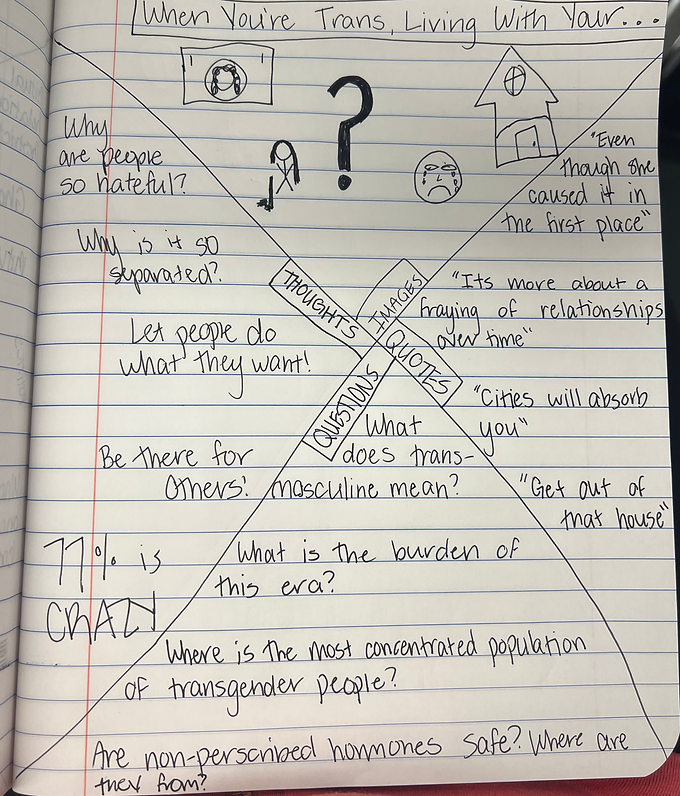 When You're Trans, Living With Your...
Why
are people
so hateful?
Why is it so
separated?
Let people do
what they want!
Be there for
others!
77% is
CRAZY
THOUGHTS
IMAGES
QUOTES
QUESTIONS
"Even
though she
caused it in
the first place"
"Its more about a
fraying of relationships
over time"
"Cities will absorb
you"
"Get out of
that house"
What
does trans-
masculine mean?
What is the burden of
this era?
Where is the most concentrated population
of transgender people?
Are non-perscribed hormones safe? Where are
they from?